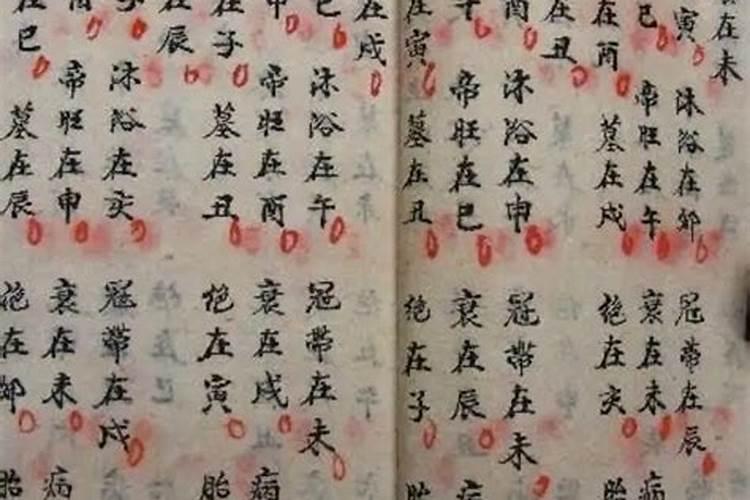 在未
寅
巳
在酉
在丑
酉
午
在寅
沐浴在卯
帝旺在午
墓在戌
沐浴在申
帝旺在巳
墓在丑
冠帶在辰
衰在未
绝在亥
冠帶在未
衰在辰
绝在子
病
胎
病
胎
在戌
巳
申
在子
在辰
子
在巳
沐浴在午
帝旺在酉
墓在丑
沐浴在亥
帝旺在申
墓在辰
冠帶在未
衰在戌
绝在寅
冠帶在戌
衰在未
绝在卯
病
胎
病
胎